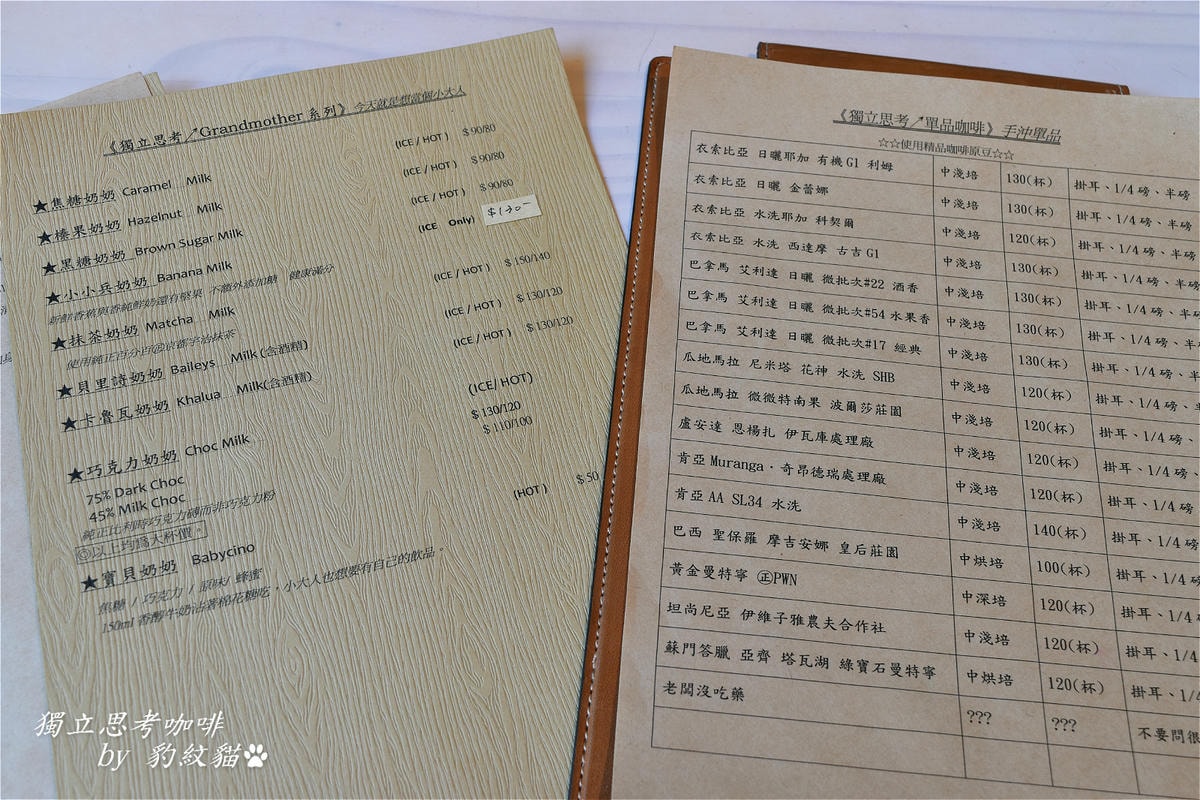 《獨立思考↗Grandmother 系列》今天就是想當個小大人
★焦糖奶奶 Caramel Milk (ICE / HOT) $ 90/80
★榛果奶奶 Hazelnut Milk (ICE / HOT) $ 90/80
★黑糖奶奶 Brown Sugar Milk (ICE / HOT) $ 90/80
★小小兵奶奶 Banana Milk (ICE Only) $130-
新鮮香蕉與香純鮮奶還有堅果 不額外添加糖 健康滿分
★抹茶奶奶 Matcha Milk (ICE / HOT) $ 150/140
使用純正百分百㊣京都宇治抹茶
★貝里詩奶奶 Baileys Milk (含酒精) (ICE / HOT) $ 130/120
★卡魯瓦奶奶 Khalua Milk(含酒精) (ICE / HOT) $ 130/120
★巧克力奶奶 Choc Milk (ICE/ HOT)
75% Dark Choc $ 130/120
45% Milk Choc $ 110/100
純正比利時巧克力磚而非巧克力粉
◎以上均為大杯價。
★寶貝奶奶 Babycino (HOT) $ 50
焦糖 / 巧克力 / 原味/ 蜂蜜
150ml 香醇牛奶沾著棉花糖吃，小大人也想要有自己的飲品。
《獨立思考↗單品咖啡》手沖單品
☆☆使用精品咖啡原豆☆☆
衣索比亞 日曬耶加 有機 G1 利姆 中淺培 130(杯) 掛耳、1/4 磅、半磅
衣索比亞 日曬 金蕾娜 中淺培 130(杯) 掛耳、1/4 磅、半磅
衣索比亞 水洗耶加 科契爾 中淺培 120(杯) 掛耳、1/4 磅、半磅
衣索比亞 水洗 西達摩 古吉 G1 中淺培 130(杯) 掛耳、1/4 磅、半磅
巴拿馬 艾利達 日曬 微批次#22 酒香 中淺培 130(杯) 掛耳、1/4 磅、半
巴拿馬 艾利達 日曬 微批次#54 水果香 中淺培 130(杯) 掛耳、1/4 磅、半
巴拿馬 艾利達 日曬 微批次#17 經典 中淺培 130(杯) 掛耳、1/4 磅、
瓜地馬拉 尼米塔 花神 水洗 SHB 中淺培 120(杯) 掛耳、1/4 磅、
瓜地馬拉 微微特南果 波爾莎莊園 中淺培 120(杯) 掛耳、1/4 磅、
盧安達 恩楊扎 伊瓦庫處理廠 中淺培 120(杯) 掛耳、1/4 磅
肯亞 Muranga·奇昂德瑞處理廠 中淺培 120(杯) 掛耳、1/4 磅
肯亞 AA SL34 水洗 中淺培 140(杯) 掛耳、1/4 磅
巴西 聖保羅 摩吉安娜 皇后莊園 中烘培 100(杯) 掛耳、1/4
黃金曼特寧 ㊣PWN 中深培 120(杯) 掛耳、1/4
坦尚尼亞 伊維子雅農夫合作社 中淺培 120(杯) 掛耳、1/4
蘇門答臘 亞齊 塔瓦湖 綠寶石曼特寧 中烘培 120(杯) 掛耳、1/4
老闆沒吃藥 ??? ??? 不要問很
獨立思考咖啡
by 豹紋貓